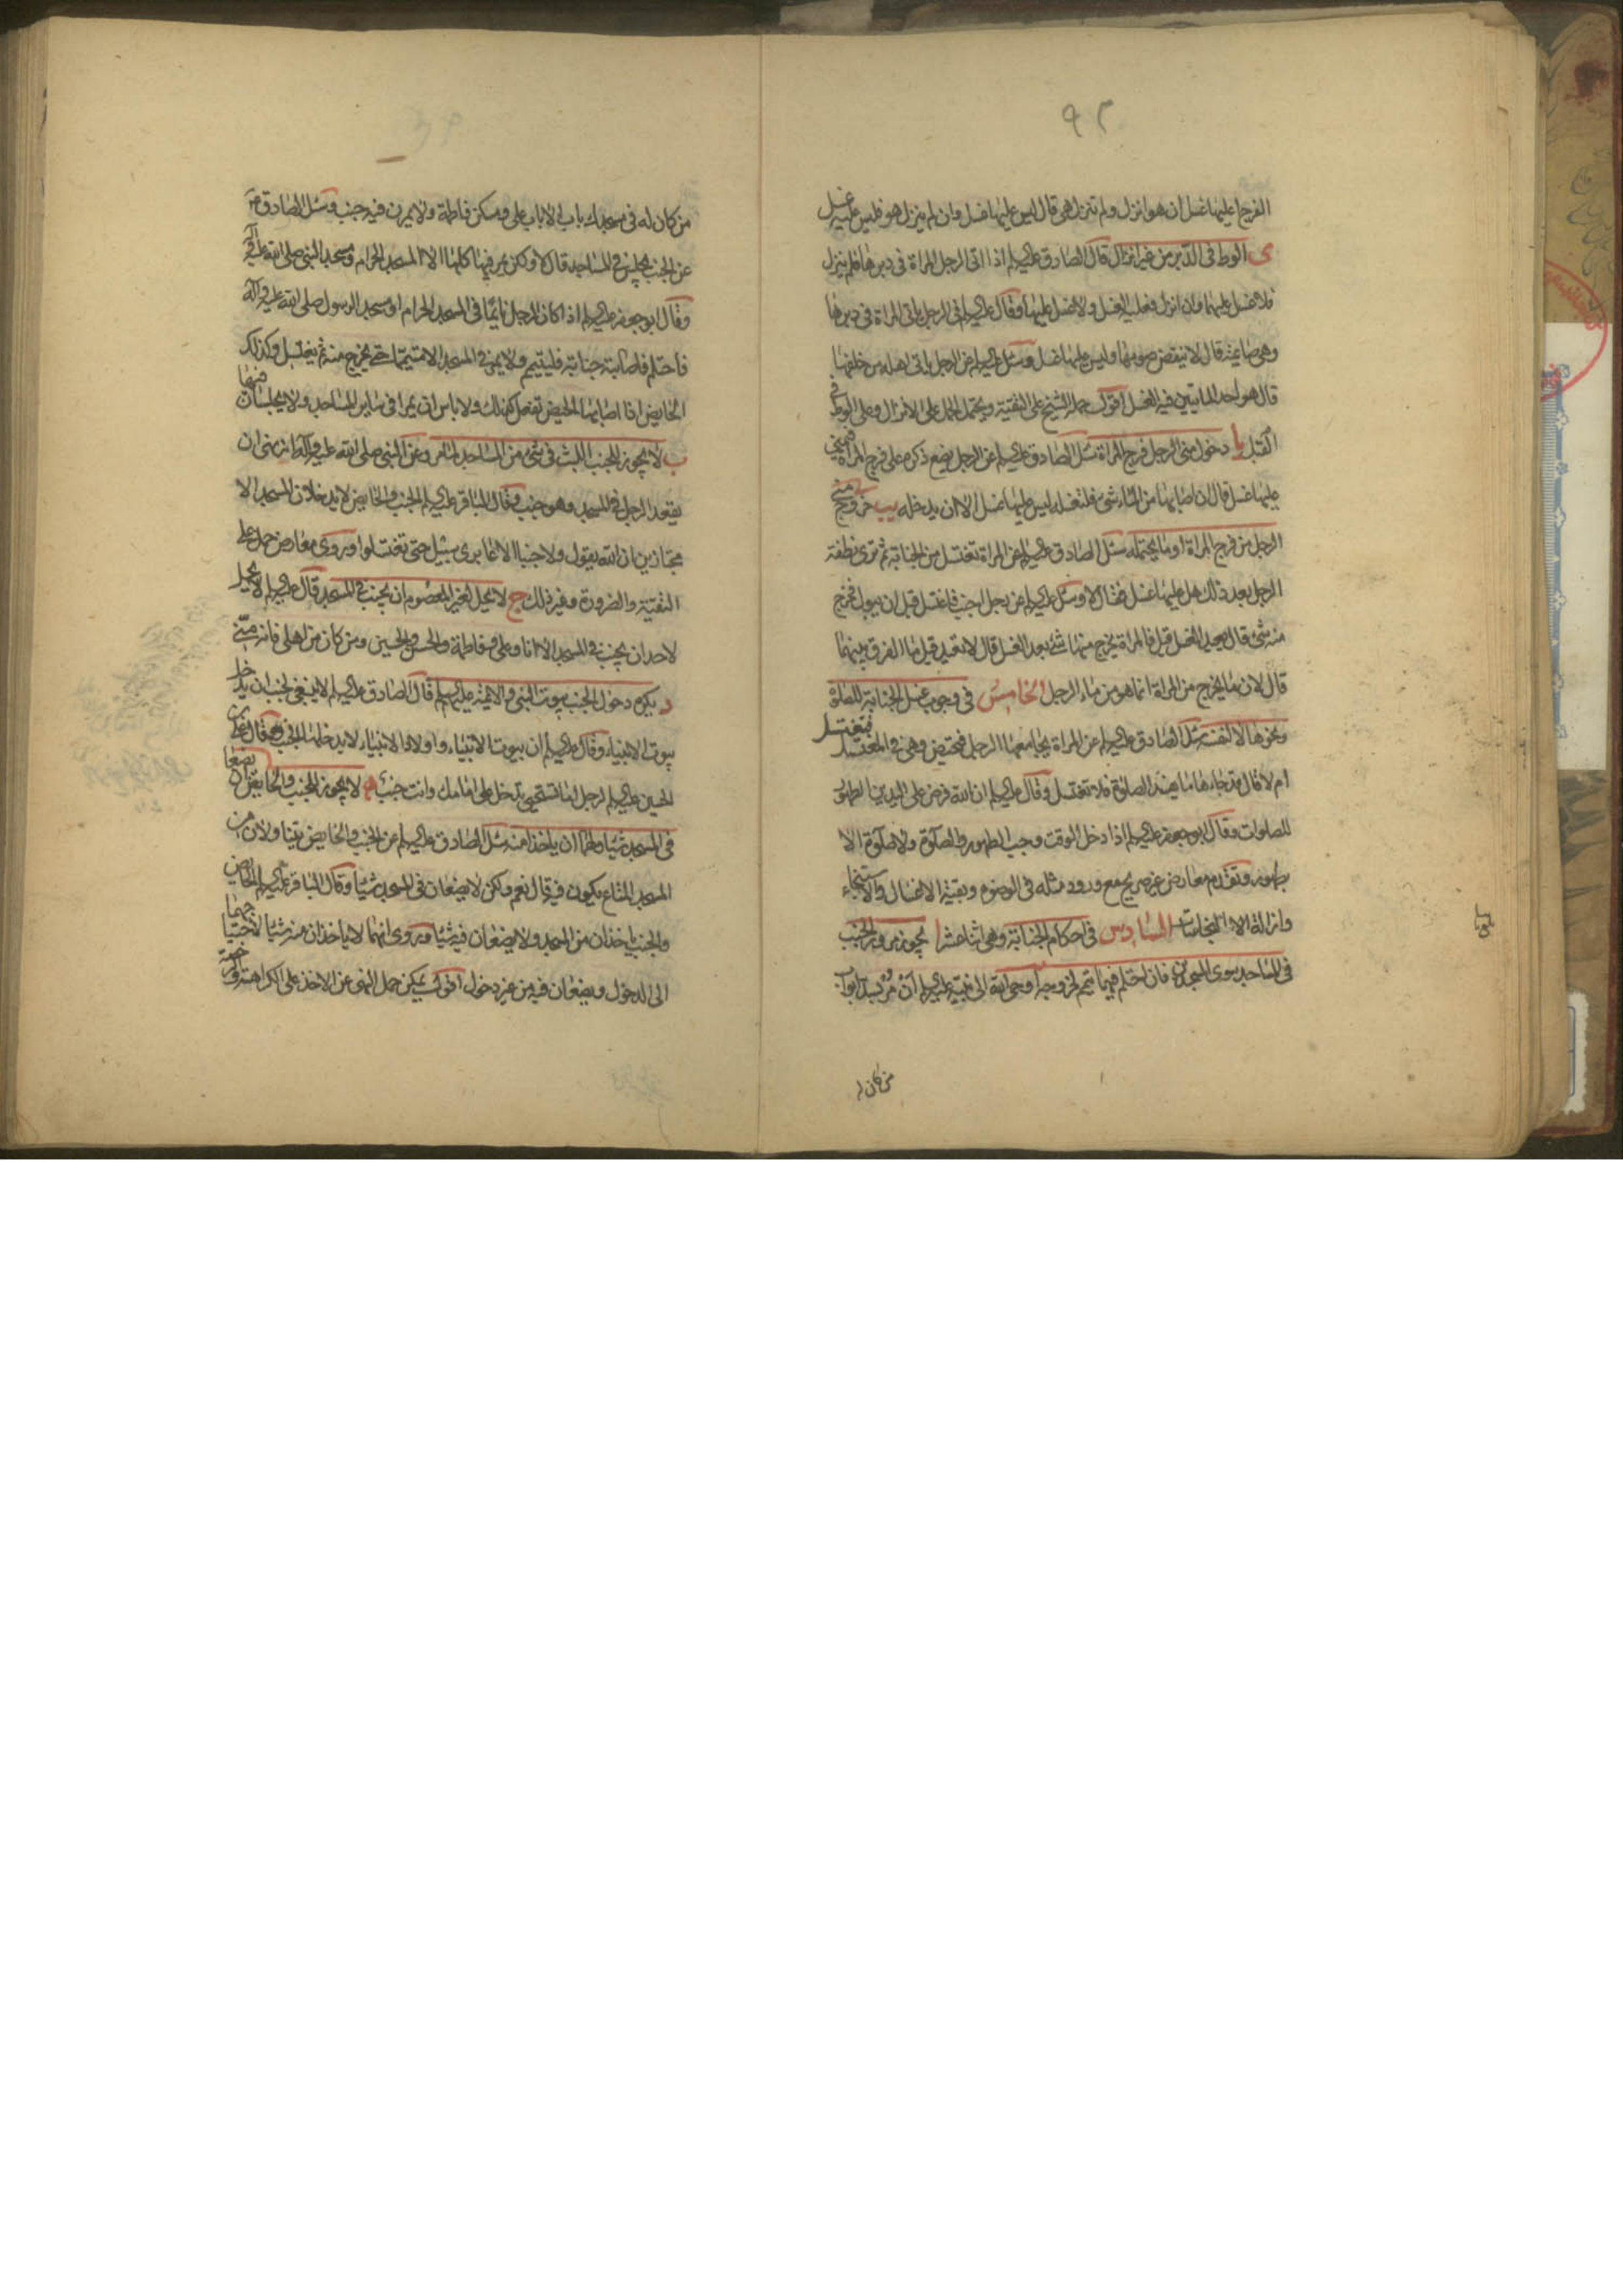 ٩٢
الفرج اعليها غسل ان هو انزل ولم تنزل هى قال ليس عليها غسل وان لم ينزل هو فليس عليه غسل
ى الوطى فى الدبر من غير انزال قال الصادق عليه السلام اذا اتى الرجل المراة فى دبرها فلم ينزل
فلا غسل عليهما وان انزل فعليه الغسل ولا غسل عليها وقال عليه السلم فى الرجل ياتى المراة فى دبرها
وهى صائمة قال لا ينقض صومها وليس عليها غسل وسئل عليه السلم عن الرجل ياتى اهله من خلفها
قال هو احد الماتيين فيه الغسل اقول حمله الشيخ على التقية ويحتمل الحمل على الانزال وعلى الوطى فى
القبل يا دخول منى الرجل فرج المراة سئل الصادق عليه السلم عن الرجل يضع ذكره على فرج المراة فيمنى
عليها غسل قال ان اصابها من الماء شئ فلتغسله ليس عليها غسل الا ان يدخله يب خروج منى
الرجل من فرج المراة او ما يحتمله سئل الصادق عليه السلم عن المراة تغتسل من الجنابة ثم ترى نطفة
الرجل بعد ذلك هل عليها غسل فقال لا وسئل عليه السلم عن رجل اجنب فاغتسل قبل ان يبول فخرج
منه شئ قال يعيد الغسل قيل فالمراة يخرج منها شئ بعد الغسل قال لا تعيد قيل ما الفرق بينهما
قال لان ما يخرج من المراة انما هو من ماء الرجل الخامس فى وجوب غسل الجنابة للصلوة
ونحوها لا لنفسه سئل الصادق عليه السلم عن المراة يجامعها الرجل فتحيض وهى فى المغتسل فتغتسل
ام لا قال قد جاءها ما يفسد الصلوة فلا تغتسل وقال عليه السلم ان الله فرض على اليدين الطهور
للصلوات وقال ابو جعفر عليه السلم اذا دخل الوقت وجب الطهور والصلوة ولا صلوة الا
بطهور وتقدم معارض غير صريح مع ورود مثله فى الوضوء وبقية الاغسال والاستنجاء
وازالة النجاسات السادس فى احكام الجنابة وهى اثنا عشر ا يجوز مرور الجنب
فى المساجد سوى المسجدين فان احتلم فيهما تيمم لخروجه اوحى الله الى نبيه عليه السلم ان مر بسد ابواب
من كان له
من كان له فى مسجدك باب الا باب على ومسكن فاطمة ولا يمرن فيه جنب وسئل الصادق ع
عن الجنب يجلس فى المساجد قال لا ولكن يمر فيها كلها الا المسجد الحرام ومسجد النبى صلى الله عليه وآله
وقال ابو جعفر عليه السلم اذا كان الرجل نائما فى المسجد الحرام او مسجد الرسول صلى الله عليه وآله
فاحتلم فاصابته جنابة فليتيمم ولا يمر فى المسجد الا متيمما حتى يخرج منه ثم يغتسل وكذلك
الحايض اذا اصابها الحيض تفعل كذلك ولا باس ان يمرا فى ساير المساجد ولا يجلسان فيها
ب لا يجوز للجنب اللبث فى شئ من المساجد لما مر وعن النبى صلى الله عليه وآله انه نهى ان
يقعد الرجل فى المسجد وهو جنب وقال الباقر عليه السلم الجنب والحايض لا يدخلان المسجد الا
مجتازين ان الله يقول ولا جنبا الا عابرى سبيل حتى تغتسلوا وروى معارض حمل على
التقية والضرورة وغير ذلك ج لا يحل لغير المعصوم ان يجنب فى المسجد قال عليه السلم لا يحل
لاحد ان يجنب فى المسجد الا انا وعلى وفاطمة والحسن والحسين ومن كان من اهلى فانه منى
د يكره دخول الجنب بيوت النبى والائمة عليهم السلم قال الصادق عليه السلم لا ينبغى لجنب ان يدخل
بيوت الانبياء وقال عليه السلم ان بيوت الانبياء واولاد الانبياء لا يدخلها الجنب وقال على بن
الحسين عليه السلم لرجل اما تستحيى تدخل على امامك وانت جنب ه لا يجوز للجنب والحايض ان يضعا
فى المسجد شيئا ولهما ان ياخذا منه سئل الصادق عليه السلم عن الجنب والحايض يتناولان من
المسجد المتاع يكون فيه قال نعم ولكن لا يضعان فى المسجد شيئا وقال الباقر عليه السلم الحايض
والجنب ياخذان من المسجد ولا يضعان فيه شيئا وروى انهما لا ياخذان منه شيئا لاحتياجهما
الى الدخول ويضعان فيه من غير دخول اقول يمكن حمل النهى عن الاخذ على الكراهة